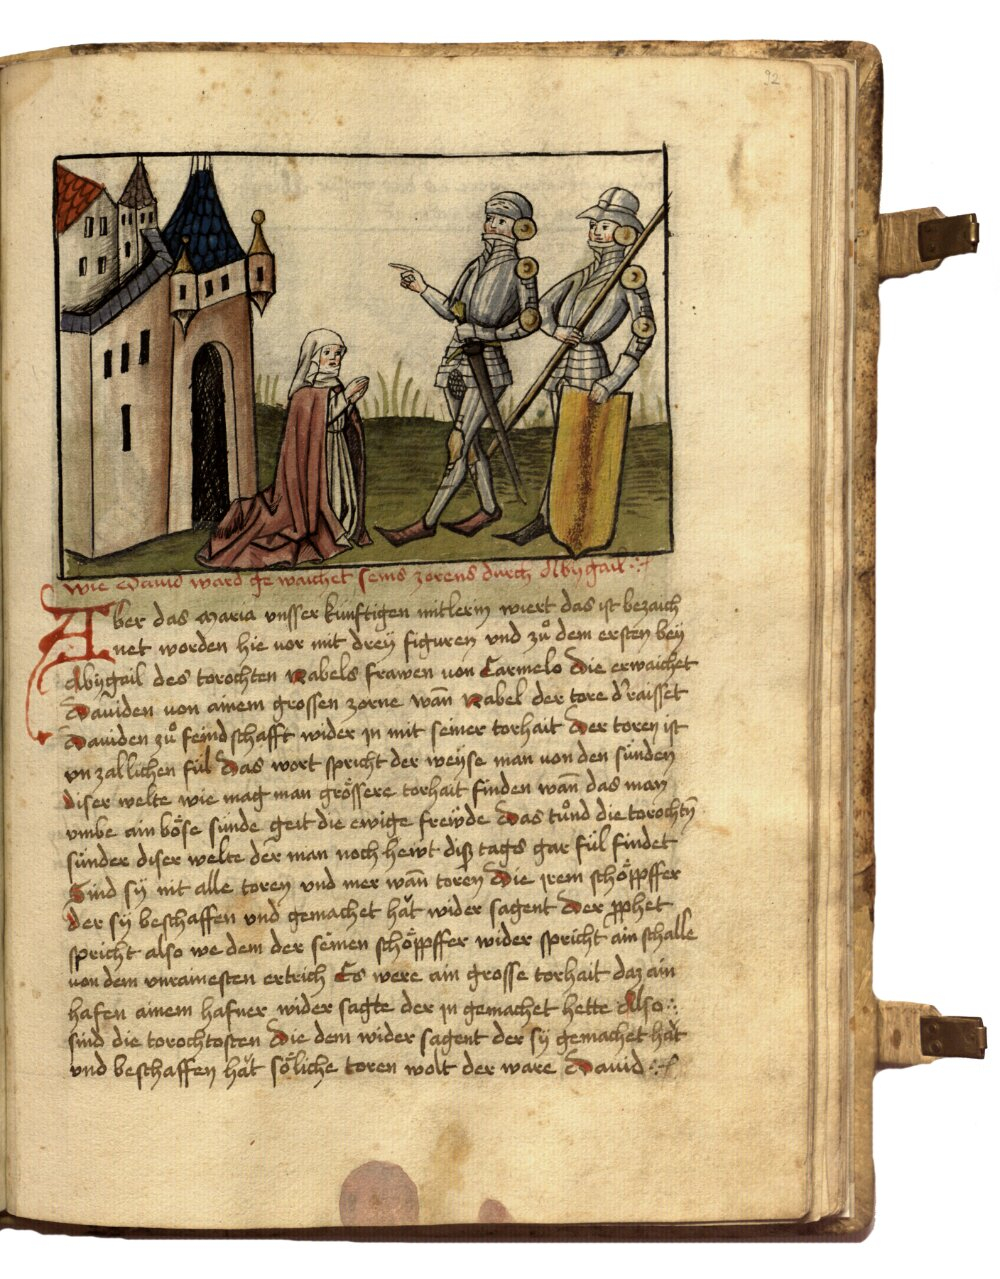 92
wie David ward gewaichet seins zorens durch Abygail
Aber das Maria vnsser künftigen mitlerin wiert das ist bezaich
net worden hie vor mit dreÿ figuren vnd zů dem ersten beÿ
Abÿgail des torochten Nabels frawen von Carmelo Die erwaichet
Dauiden von ainem grossen zorne wañ Nabel der tore d'raisset
Dauiden zů feindschafft wider in mit seiner torhait Der toren ist
vnzallichen fül Das wort spricht der weÿse man von den sünden
diser welte wie mag man grössere torhait finden wañ das man
vmbe ain böse sünde geit die ewige freẅde Das tůnd die torochtñ
sünder diser welte der man noch hewt diß tags gar fül findet
Sind sÿ nit alle toren vnd mer wañ toren Die irem schöpffer
der sÿ beschaffen vnd gemachet hăt wider sagent Der pphet
spricht also we dem der seinen schöpffer wider spricht ain schalle
von dem vnrainesten ertrich Es were ain grosse torhait daz ain
hafen ainem hafner wider sagte der in gemachet hette Also
sind die torochtosten Die dem wider sagent der sÿ gemachet hăt
vnd beschaffen hăt söliche toren wolt der ware Dauid